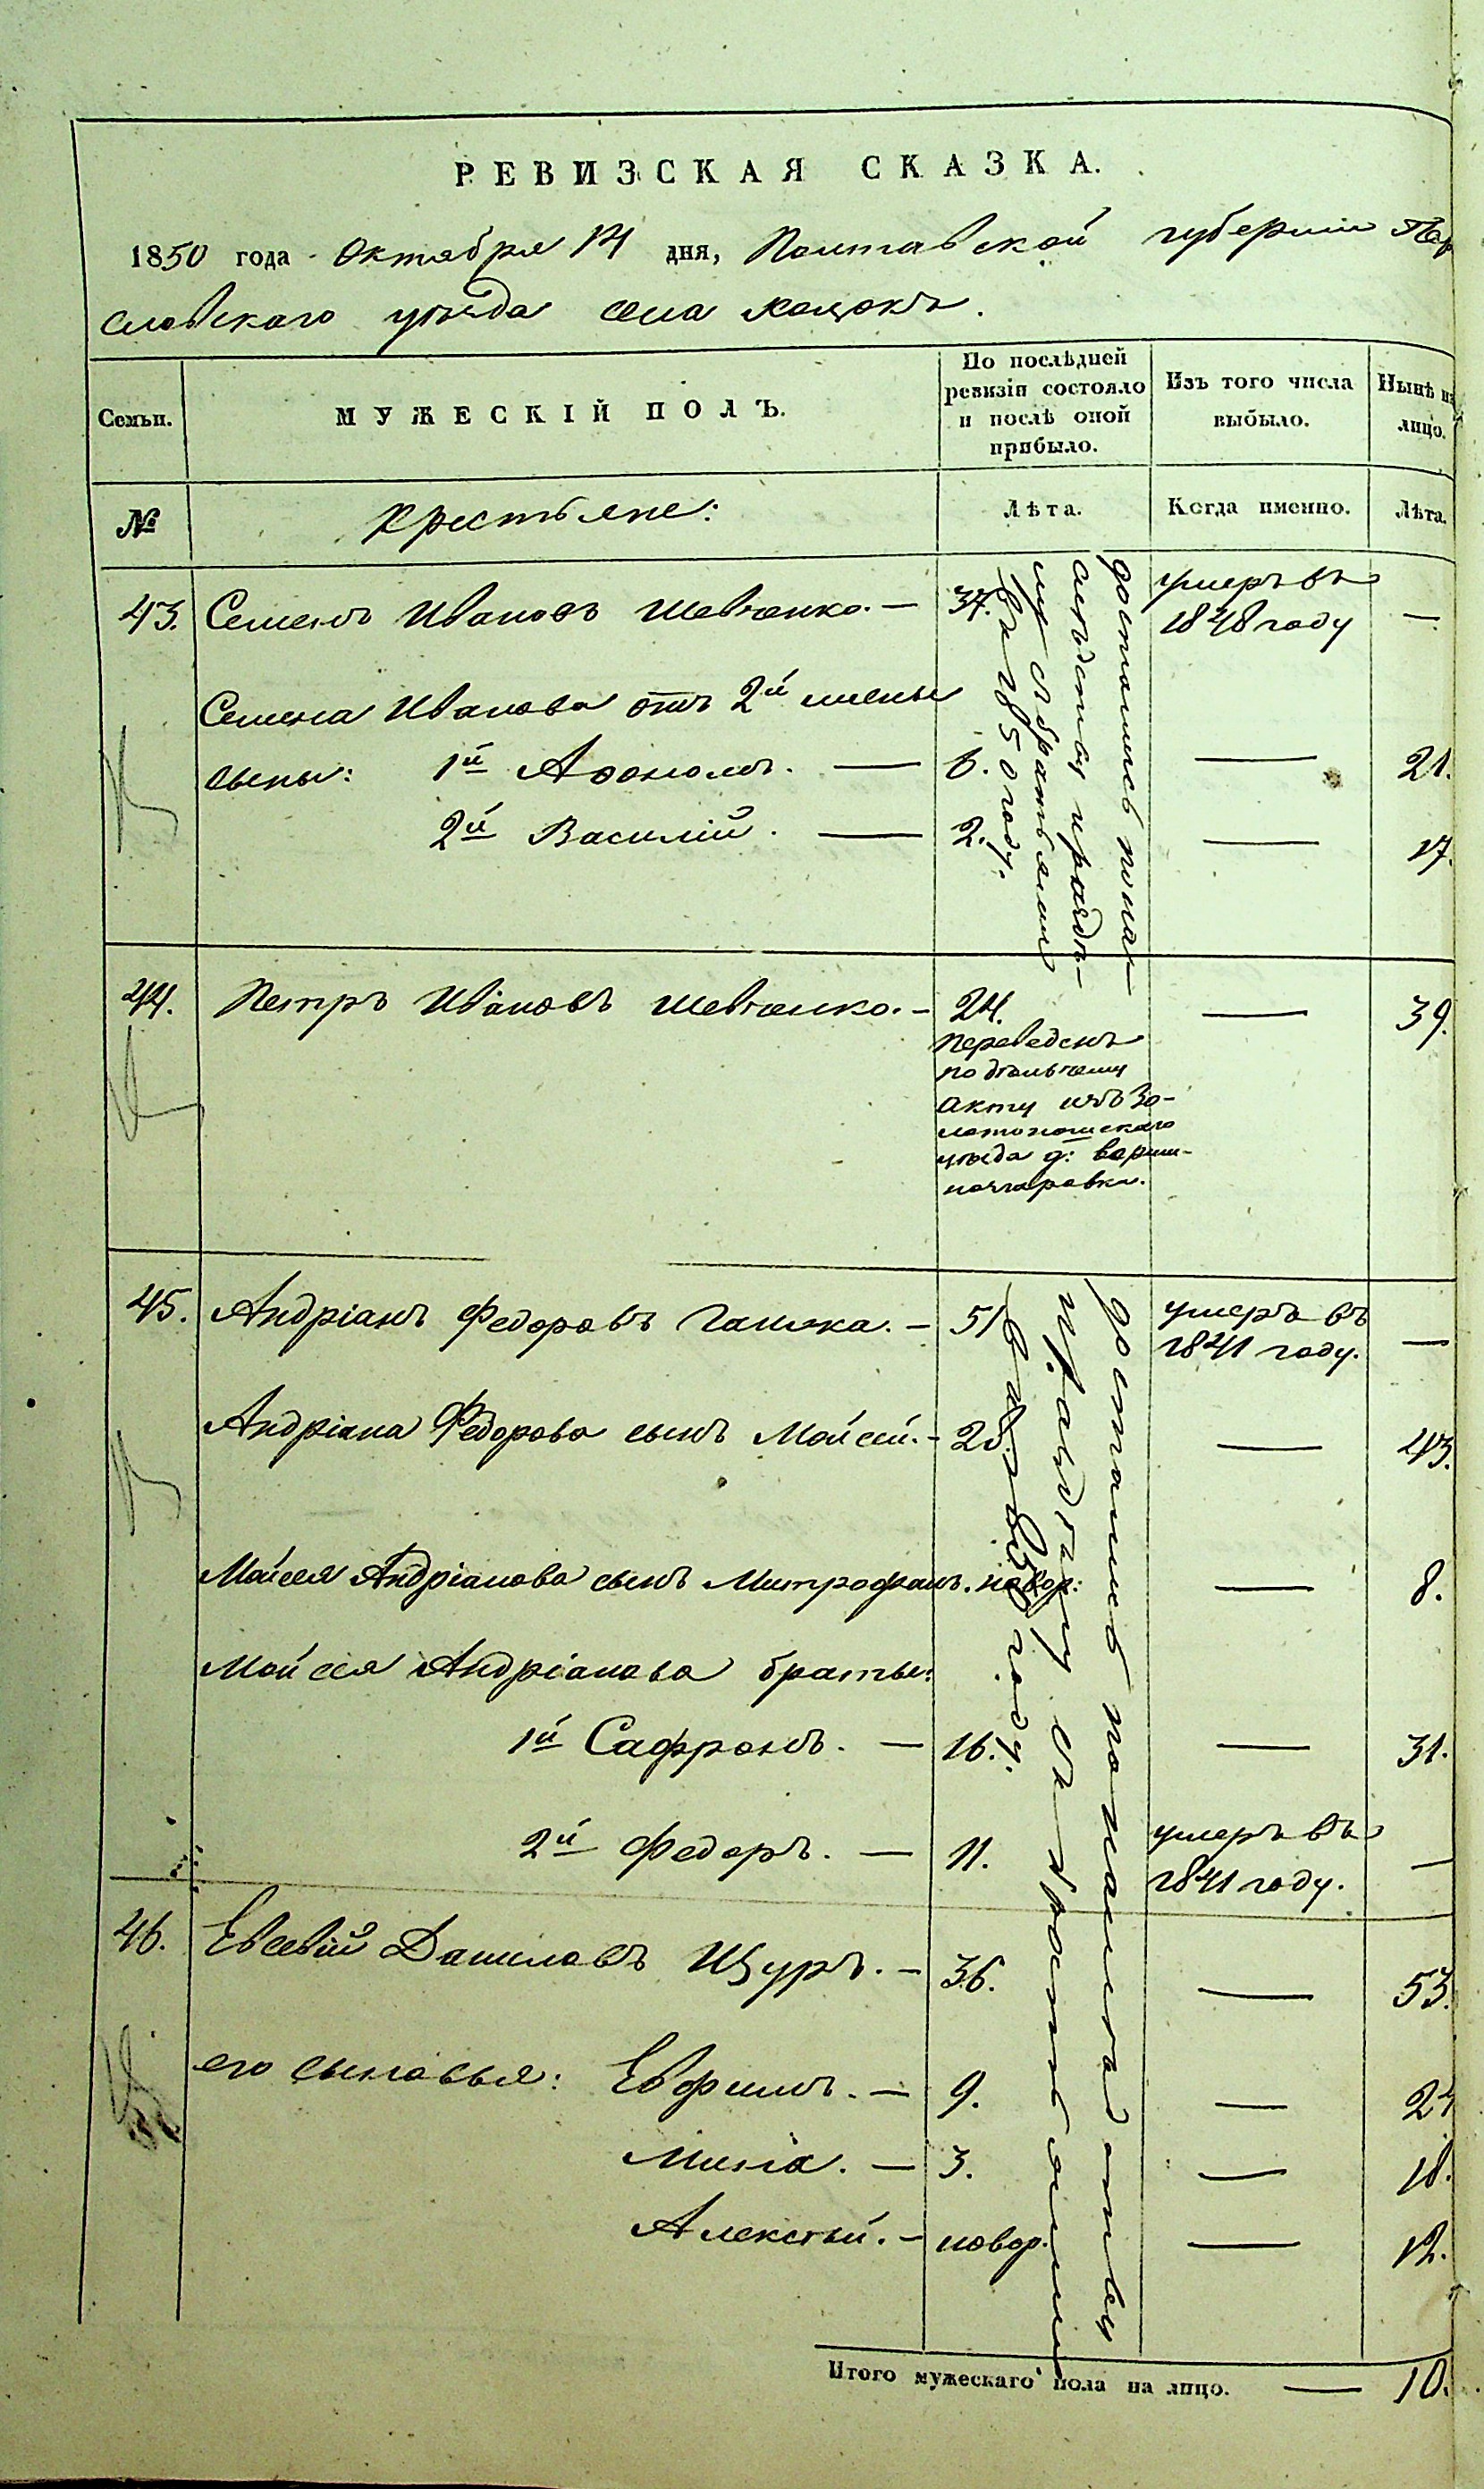 РЕВИЗСКАЯ СКАЗКА.
1850 года Октября 14 дня, Полтавской губернии Пере
славскаго уѣзда села
Семьи.
МУЖЕСКІЙ ПОЛЪ.
По послѣдней
ревизіи состояло
и послѣ оной
прибыло.
Изъ того числа
выбыло.
Нынѣ на
лицо.
№
Крестьяне:
Лѣта.
Когда именно.
Лѣта.
43. Семенъ Ивановъ Шевченко. — 37. умеръ въ —
1848 году
Семена Иванова отъ 2й жены
сыны: 1й Афоном. — 6. — 21.
2й Василій. — 2. — 17.
достались по на-
слѣдству и раздѣ-
лу съ братьями
въ 1850 году.
44. Петръ Ивановъ Шевченко. — 24. — 39.
переведенъ
по
акту изъ Зо-
лотоношскаго
уѣзда д:
45. Андріанъ Федоровъ Ганжа. — 51 умеръ въ —
1841 году.
Андріана Федорова сынъ Мойсей. — 28. — 43.
Мойсея Андріанова сынъ Митрофанъ. новор: — 8.
Мойсея Андріанова братья:
1й Сафронъ. — 16. — 31.
2й Федоръ. — 11. умеръ въ —
1841 году.
достались по наслѣдству
и раздѣлу съ братьями
въ 1850 году.
46. Евсевій Даниловъ Щуръ. — 36. — 53.
его сыновья: Евфимъ. — 9. — 24
Мина. — 3. — 18.
Алексѣй. — новор. — 12.
Итого мужескаго пола на лицо. — 10.